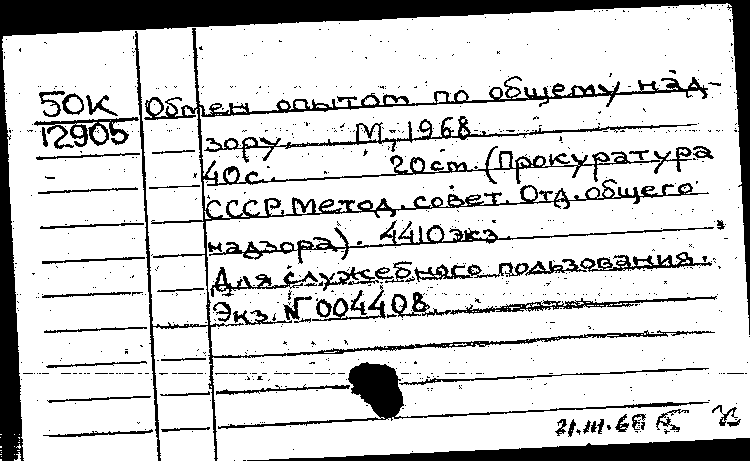 50К Обмен опытом по общему над-
12905 зору. М., 1968.
40с. 20см. (Прокуратура
СССР. Метод. совет. Отд. общего
надзора). 4410 экз.
Для служебного пользования.
Экз. № 004408.
21.III.68